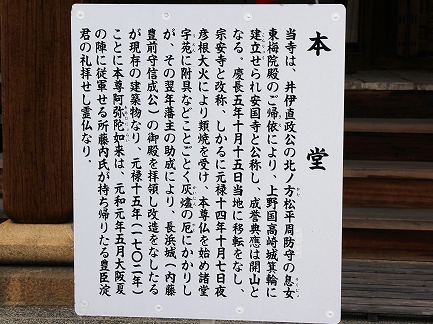 本堂
当寺は、井伊直政公の北ノ方松平周防守の息女
東梅院殿のご帰依により、上野国高崎城箕輪に
建立せられ安国寺と公称し、成誉典應は開山と
なる。慶長五年十月十五日当地に移転をなし、
宗安寺と改称、しかるに元禄十四年十月七日夜
彦根大火により類焼を受け、本尊仏を始め諸堂
宇苑に附具などことごとく灰燼の厄にかかりし
が、その翌年藩主の助成により、長浜城、(内藤
豊前守信成公)の御殿を拝領し改造をなしたる
が現存の建築物なり、元禄十五年(一七〇二年)
ことに本尊阿弥陀如来は、元和元年五月大阪夏
の陣に従軍せる所藤内氏が持ち帰りたる豊臣淀
君の礼拝せし霊仏なり。